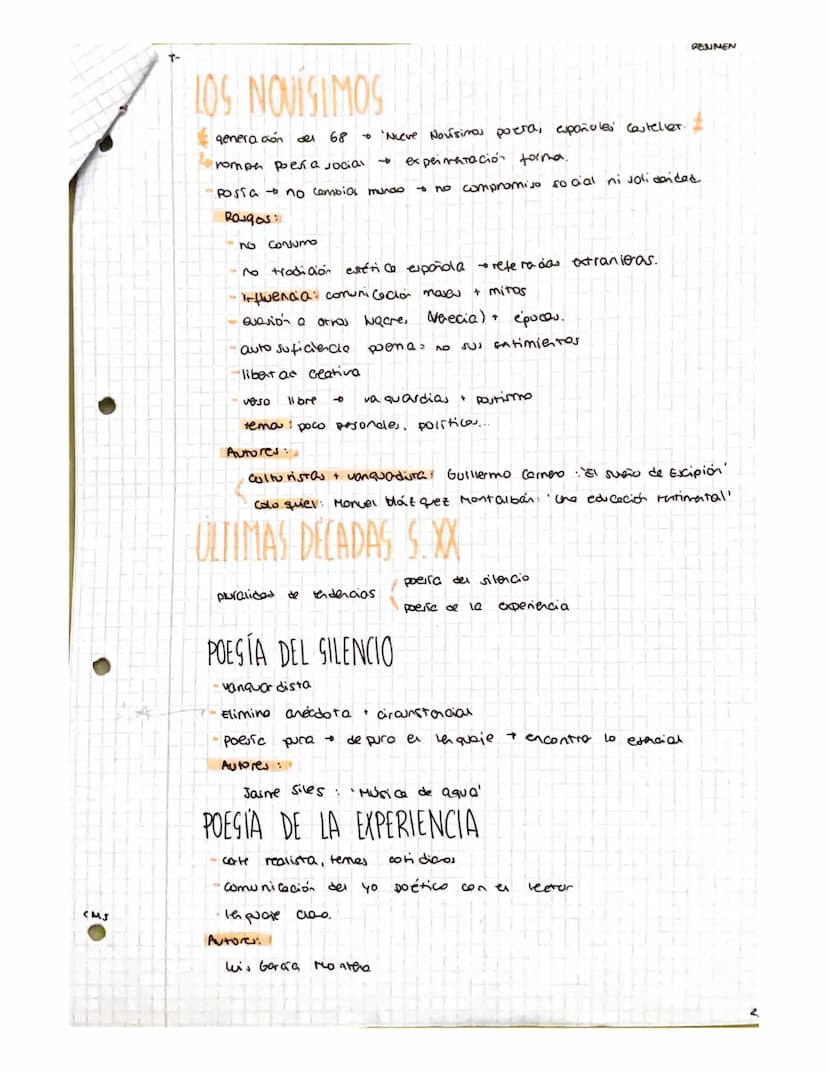 RESUMEN
T-
LOS NOVÍSIMOS
generación del 68 → 'Nueve Novísimos poetas españoles' Castellet.
rompen poesía social → experimentación forma.
- poesía → no cambiar mundo → no compromiso social ni solidaridad
Rasgos:
- no consumo
- no tradición estética española → referencias extranjeras.
- Influencia: comunicación masas + mitos
- evasión a otros lugares (Venecia) + épocas.
- auto suficiencia poema: no sus sentimientos
- libertad creativa
- verso libre → vanguardias + postismo
temas: poco personales, políticos...
Autores:
culturistas + vanguardistas: Guillermo Carnero: 'El sueño de Escipión'
Coloquial: Manuel Vázquez Montalbán: 'Una educación sentimental'
ÚLTIMAS DÉCADAS S. XX
pluralidad de tendencias
poesía del silencio
poesía de la experiencia
POESÍA DEL SILENCIO
- vanguardista
- Elimina anécdota + circunstancial
- Poesía pura → depura el lenguaje → encontrar lo esencial
Autores:
Jaime Siles: 'Música de agua'
POESÍA DE LA EXPERIENCIA
- corte realista, temas cotidianos
- comunicación del yo poético con el lector
- lenguaje claro.
CMS
Autores:
Luis García Montero
2